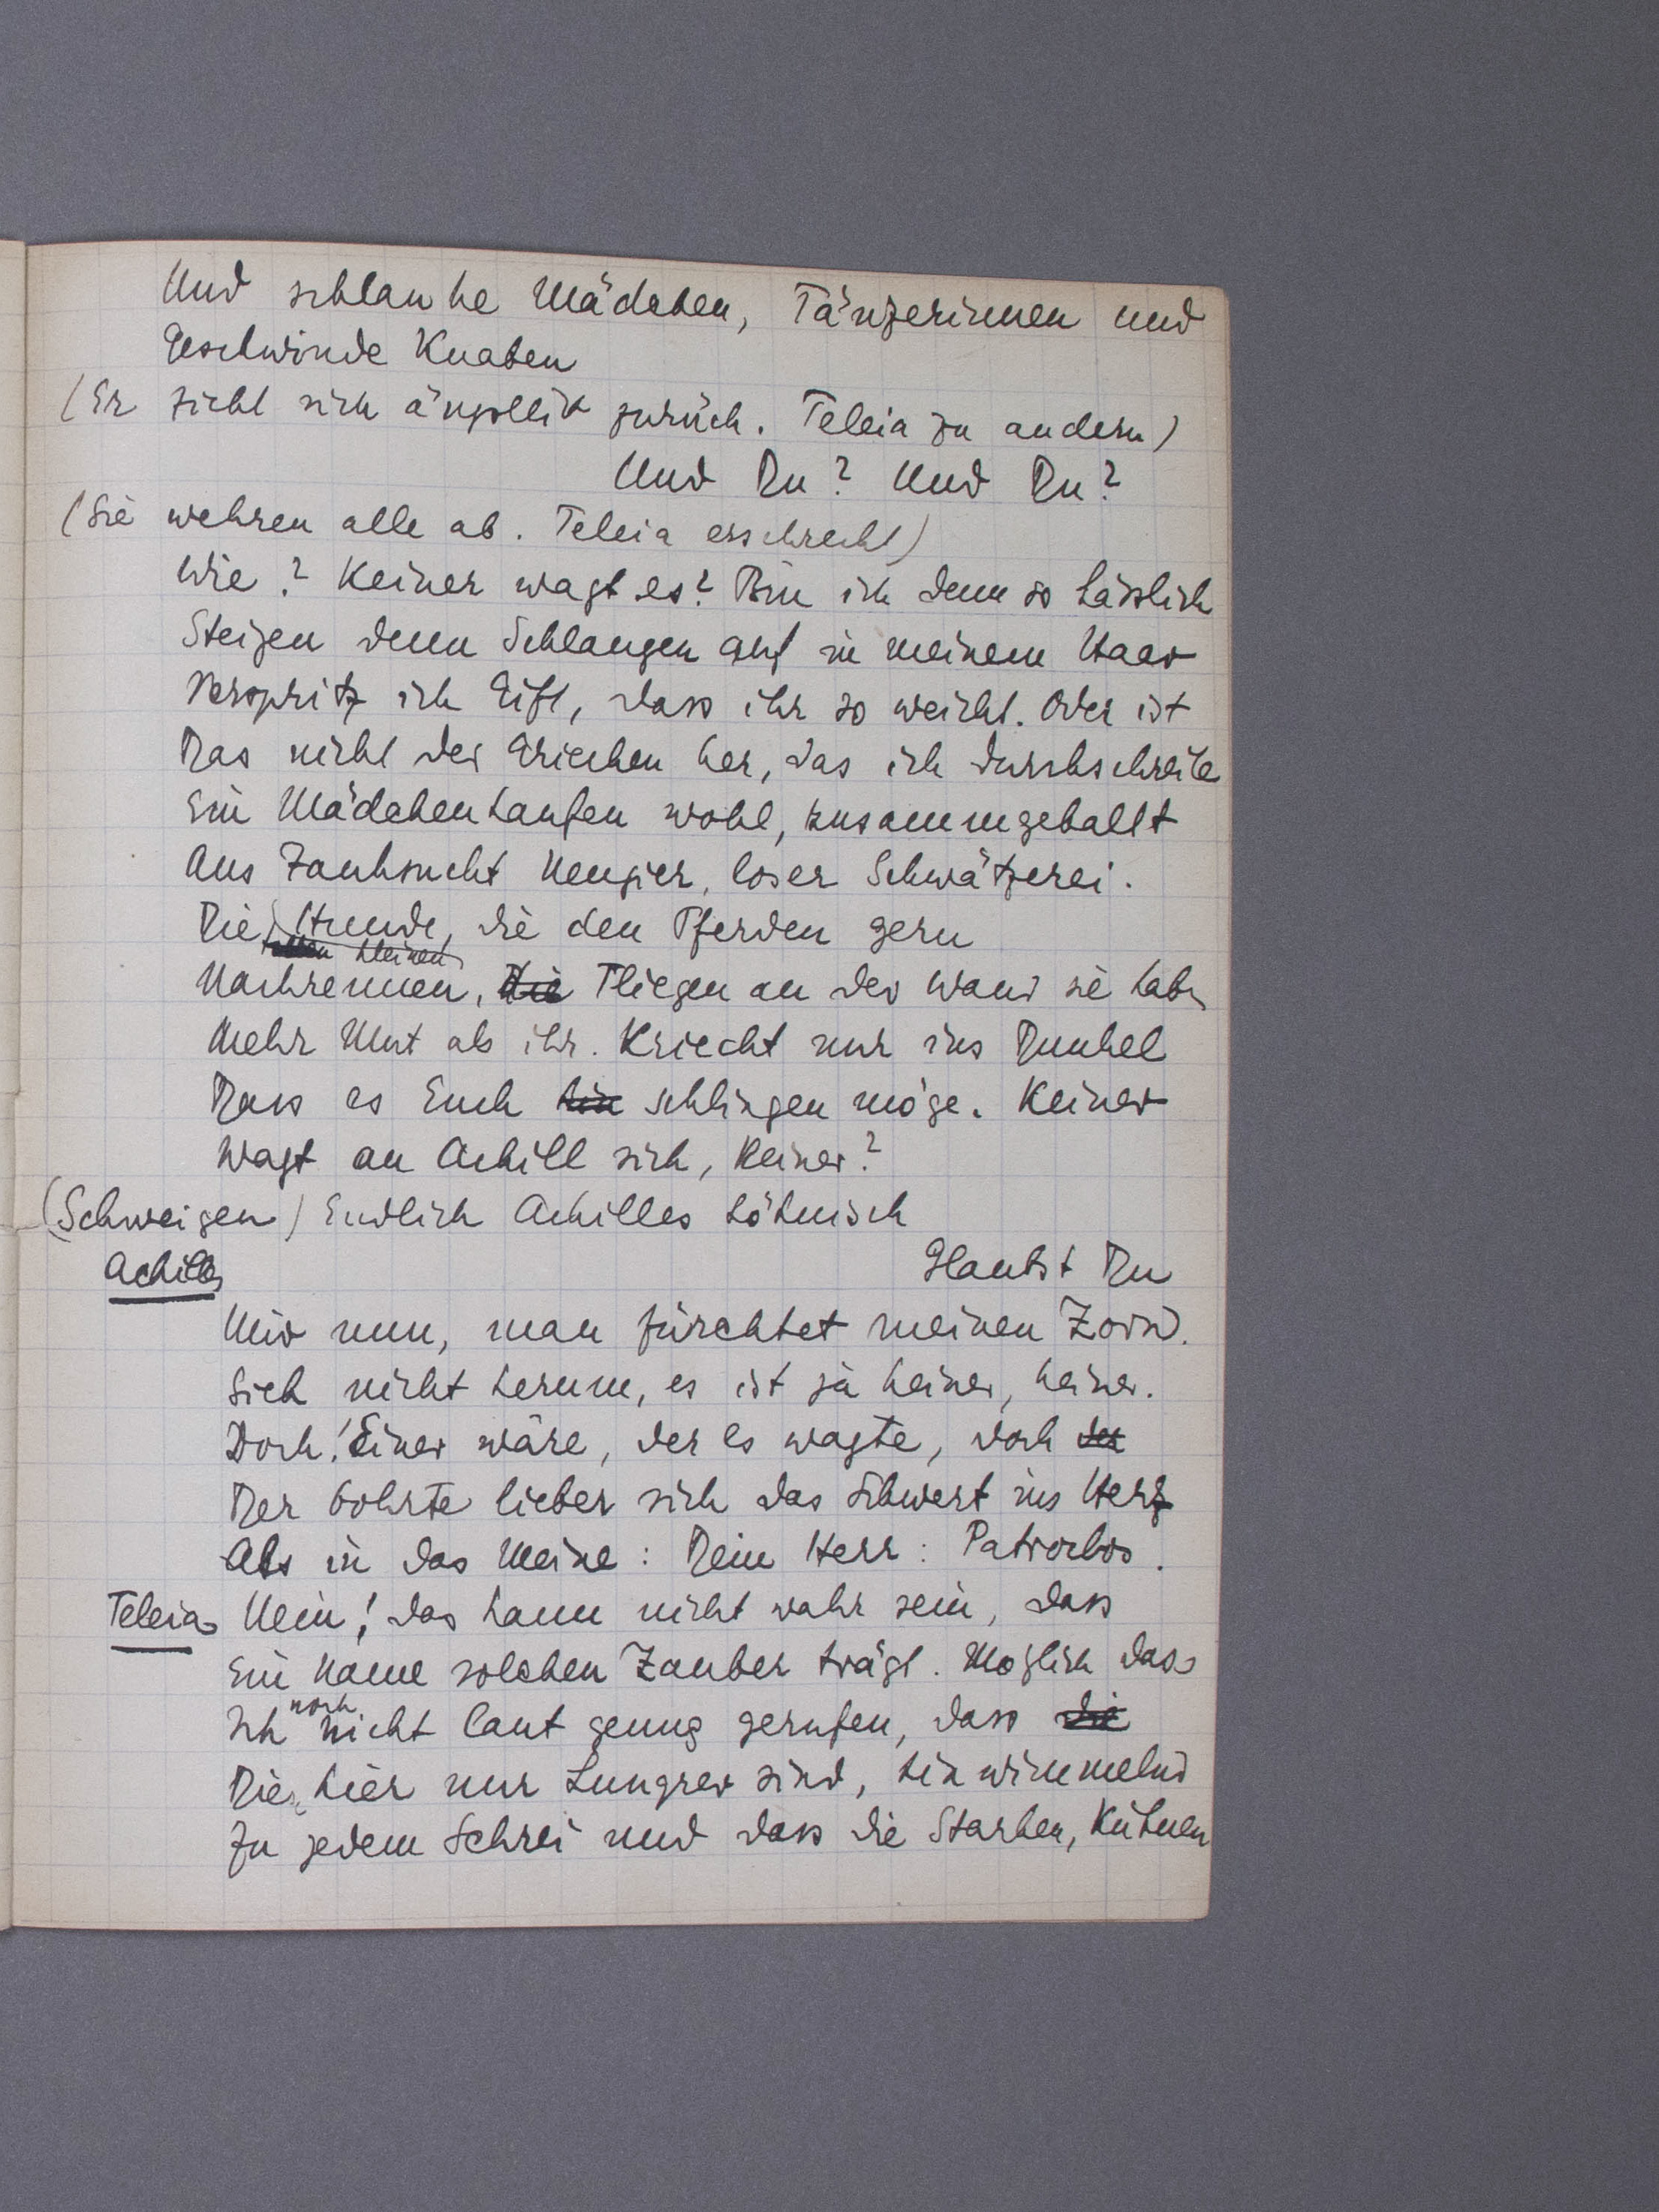 Und schlanke Mädchen, Tänzerinnen und
Geschwinde Knaben
(Er zieht sich ängstlich zurück. Teleia zu andern)
Und Du? Und Du?
(Sie wehren alle ab. Teleia erschreckt)
Wie? Keiner wagt es? Bin ich denn so hässlich
Steigen denn Schlangen auf in meinem Haar
Verspritz ich Gift, dass ihr so weicht. Oder ist
Das nicht der Griechen her, das ich durchschreite
Ein Mädchenhaufen wohl, zusammgeballt
Aus Zanksucht Neugier, loser Schwätzerei.
Die Hunde, die den Pferden gern
kleinen
Nachrennen, die Fliegen an der Wand sie haben
Mehr Mut als ihr. Kriecht nur ins Dunkel
Dass es Euch hin schlingen möge. Keiner
Wagt an Achill sich, Keiner?
(Schweigen) Endlich Achilles höhnisch
Achilles
Glaubst Du
Mir nun, man fürchtet meinen Zorn.
Sieh nicht herum, es ist ja keiner, keiner.
Doch! Einer wäre, der es wagte, doch der
Der bohrte lieber sich das Schwert ins Herz
Als in das Meine: Dein Herr: Patroklos.
Teleia Nein! das kann nicht wahr sein, dass
Ein Name solchen Zauber trägt. Möglich dass
noch
Ich nicht laut genug gerufen, dass die
Die hier nur Lungrer sind, hinwimmelnd
Zu jedem Schrei und dass die Starken, Kühnen